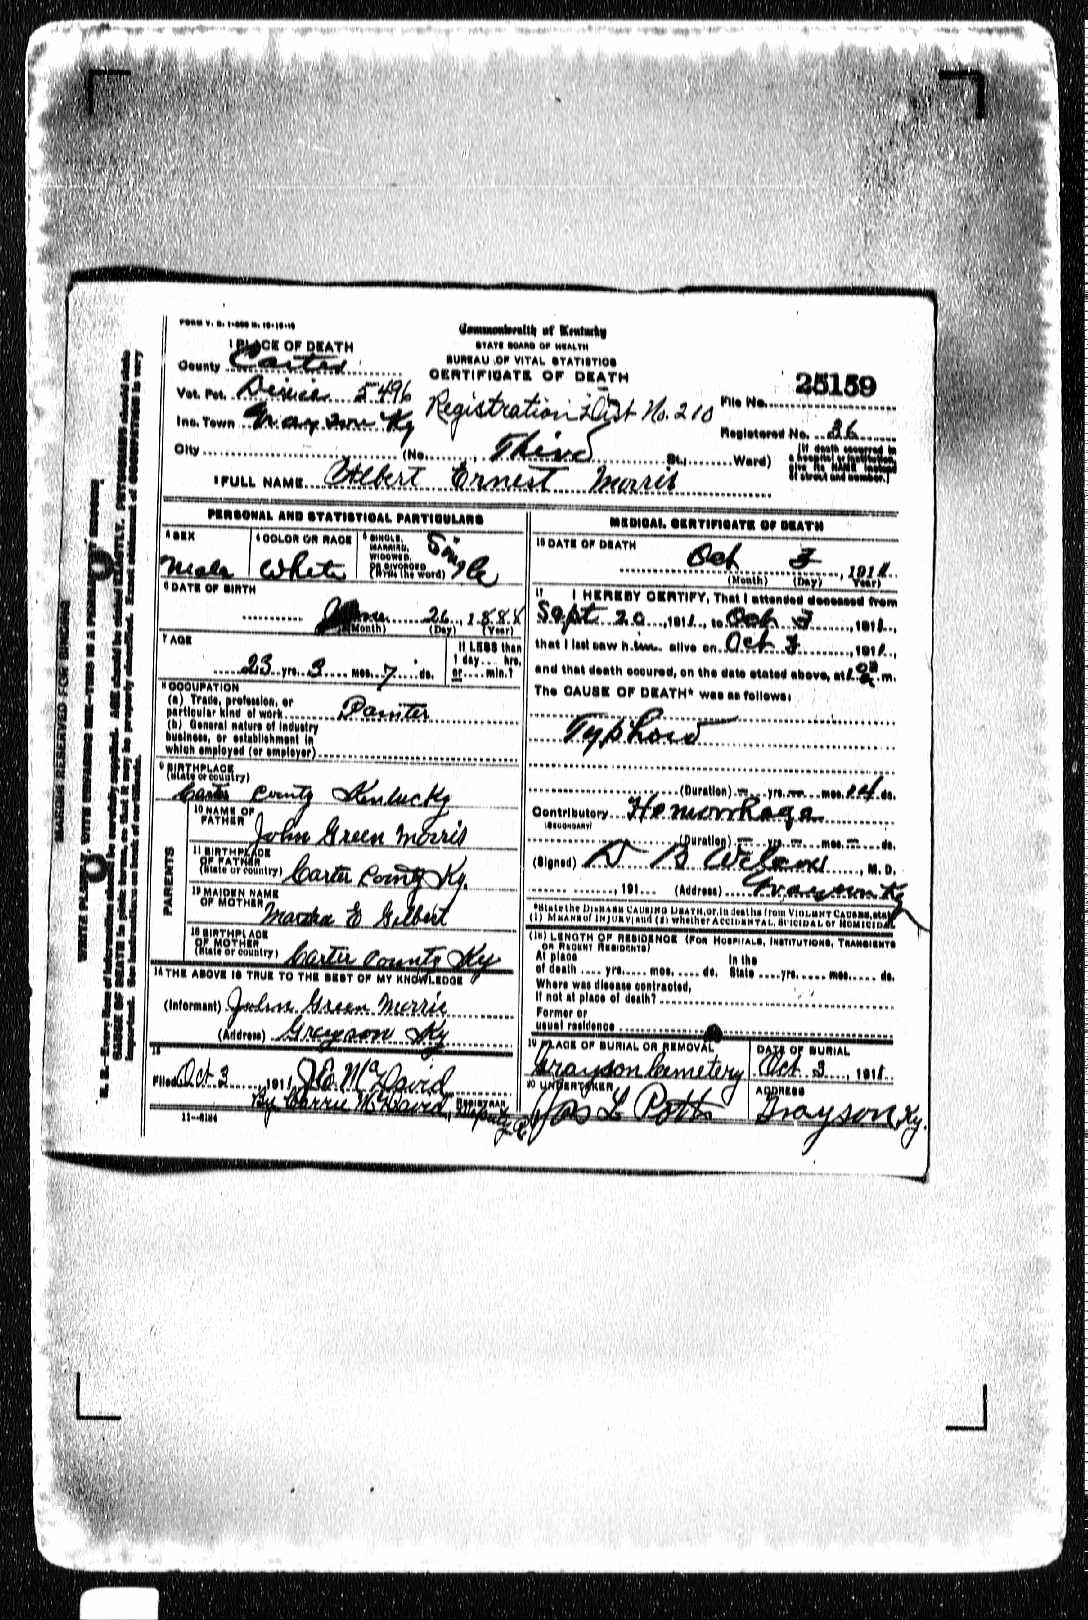 FORM V. S. 1-
Commonwealth of Kentucky
STATE BOARD OF HEALTH
BUREAU OF VITAL STATISTICS
CERTIFICATE OF DEATH
1 PLACE OF DEATH
County Carter
Vot. Pct. 5496
Registration Dist No. 210
25159
File No.
Inc. Town Grayson Ky
Registered No. 36
City (No. Third St.; Ward)
[If death occurred in a hospital or institution, give its NAME instead of street and number.]
2 FULL NAME Albert Ernest Morris
PERSONAL AND STATISTICAL PARTICULARS
3 SEX Male
4 COLOR OR RACE White
5 SINGLE, MARRIED, WIDOWED, OR DIVORCED (Write the word) Single
6 DATE OF BIRTH
June 26, 1888
(Month) (Day) (Year)
7 AGE
23 yrs. 3 mos. 7 ds.
If LESS than 1 day... hrs. or.... min.?
8 OCCUPATION
(a) Trade, profession, or particular kind of work Painter
(b) General nature of industry business, or establishment in which employed (or employer)
9 BIRTHPLACE
(State or country)
Carter County Kentucky
PARENTS
10 NAME OF FATHER John Green Morris
11 BIRTHPLACE OF FATHER (State or country) Carter County Ky.
12 MAIDEN NAME OF MOTHER Martha E Gilbert
13 BIRTHPLACE OF MOTHER (State or country) Carter County Ky
14 THE ABOVE IS TRUE TO THE BEST OF MY KNOWLEDGE
(Informant) John Green Morris
(Address) Grayson Ky
15
Filed Oct 3, 1911 McDavid
By Carrie McDavid, REGISTRAR
11-5184
MEDICAL CERTIFICATE OF DEATH
16 DATE OF DEATH
Oct 3 1911
(Month) (Day) (Year)
17 I HEREBY CERTIFY, That I attended deceased from
Sept 20, 1911, to Oct 3, 1911,
that I last saw him alive on Oct 3, 1911,
and that death occured, on the date stated above, at m.
The CAUSE OF DEATH* was as follows:
Typhoid
(Duration) yrs. mos. 14 ds.
Contributory Hemorrhage
(SECONDARY)
(Duration) yrs. mos. ds.
(Signed) D B Wilcox, M. D.
, 191... (Address) Grayson Ky
*State the DISEASE CAUSING DEATH, or, in deaths from VIOLENT CAUSES, state
(1) MEANS OF INJURY; and (2) whether ACCIDENTAL, SUICIDAL or HOMICIDAL
(18) LENGTH OF RESIDENCE (FOR HOSPITALS, INSTITUTIONS, TRANSIENTS OR RECENT RESIDENTS)
At place of death .... yrs..... mos..... ds. In the State ....yrs..... mos..... ds.
Where was disease contracted,
If not at place of death?
Former or
usual residence
19 PLACE OF BURIAL OR REMOVAL
Grayson Cemetery
DATE OF BURIAL
Oct 3, 1911.
20 UNDERTAKER
Jas L Potts
ADDRESS
Grayson, Ky.
MARGIN RESERVED FOR BINDING